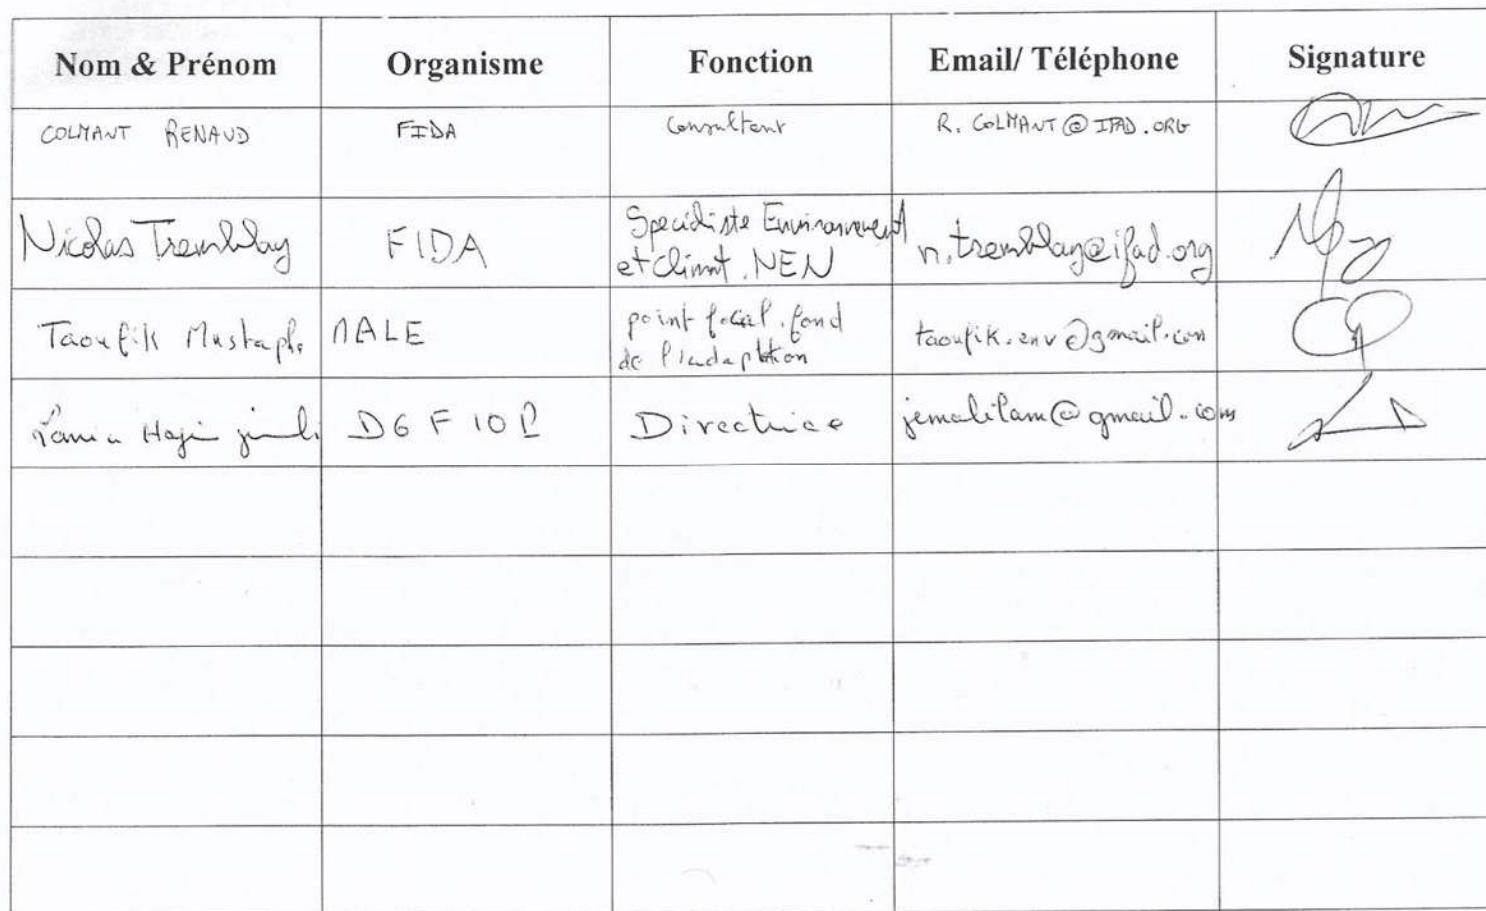 Nom & Prénom Organisme Fonction Email/ Téléphone Signature
COLMANT RENAUD FIDA Consultant R. COLMANT@IFAD.ORG
Nicolas Tremblay FIDA Spécialiste Environnement
et Climat. NEN n.tremblay@ifad.org
Taoufik Mustapha MALE point focal. fond
de l'adaptation taoufik.env@gmail.com
DGFIOP Directrice jemalilam@gmail.com